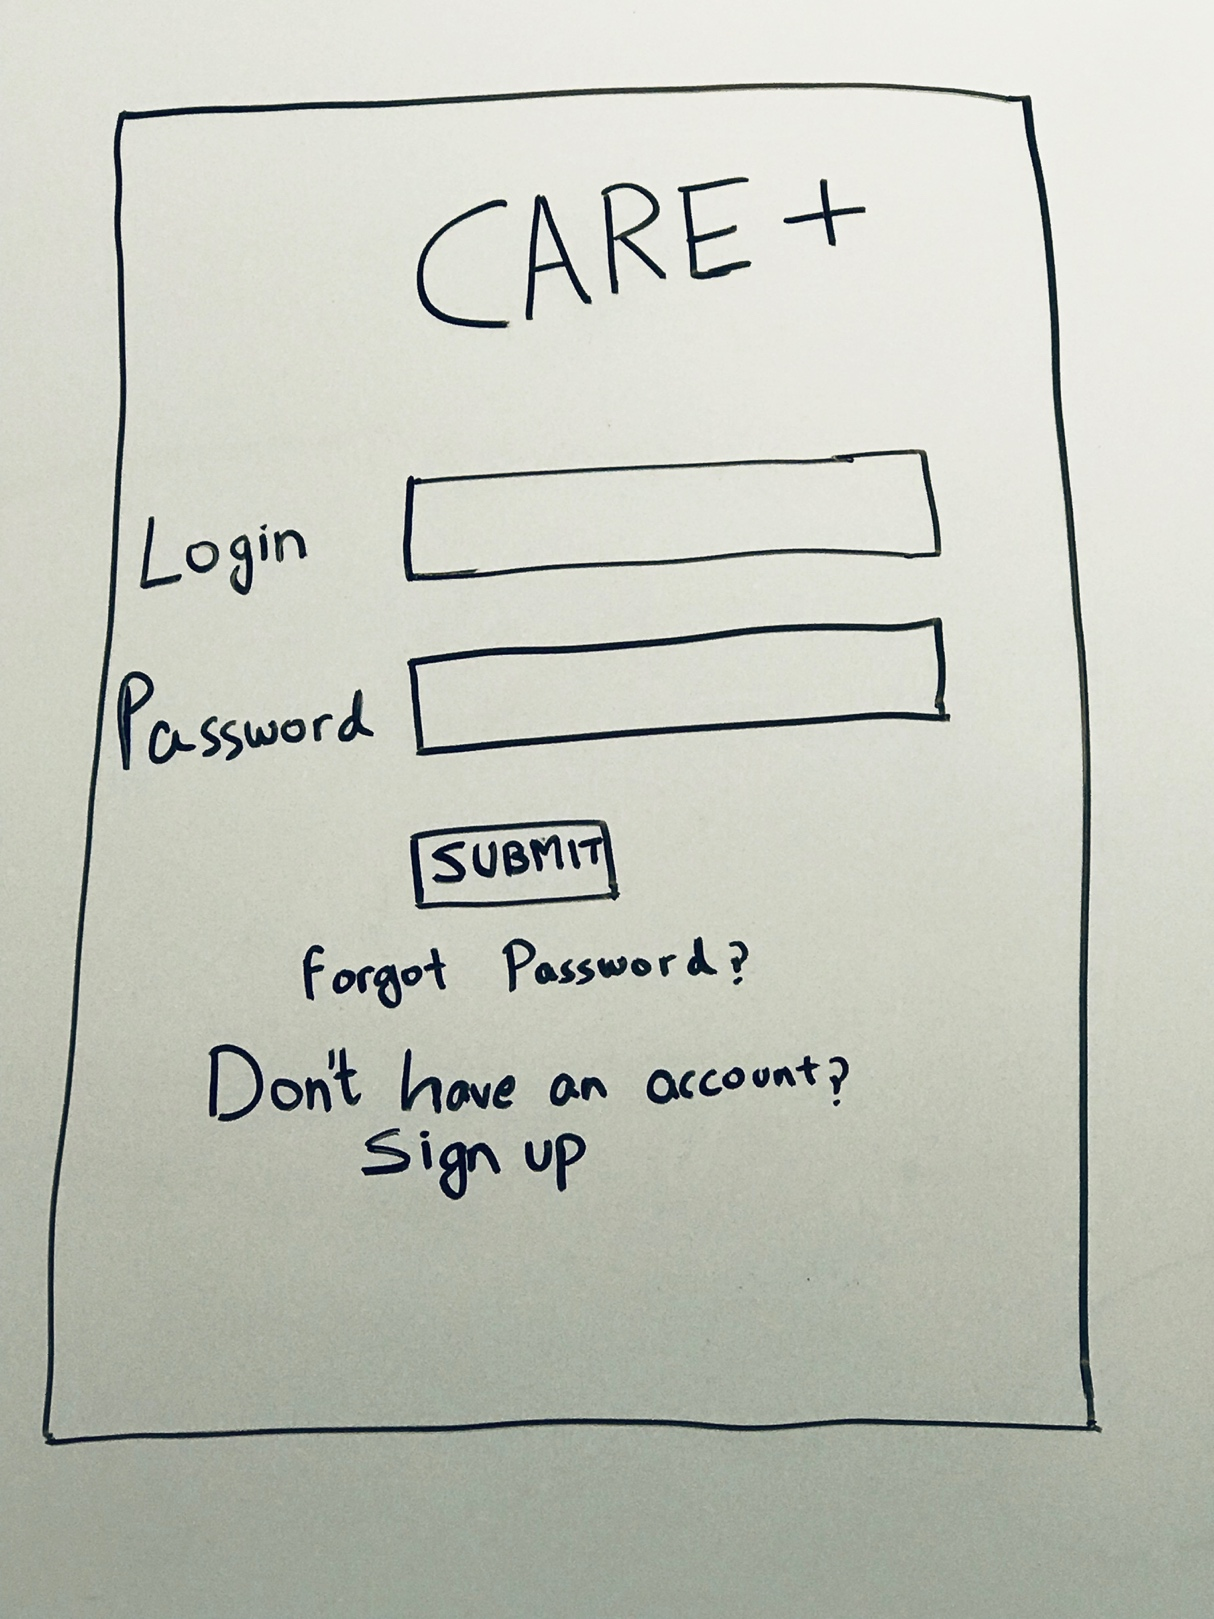 CARE +
Login
Password
SUBMIT
Forgot Password?
Don't have an account?
Sign up